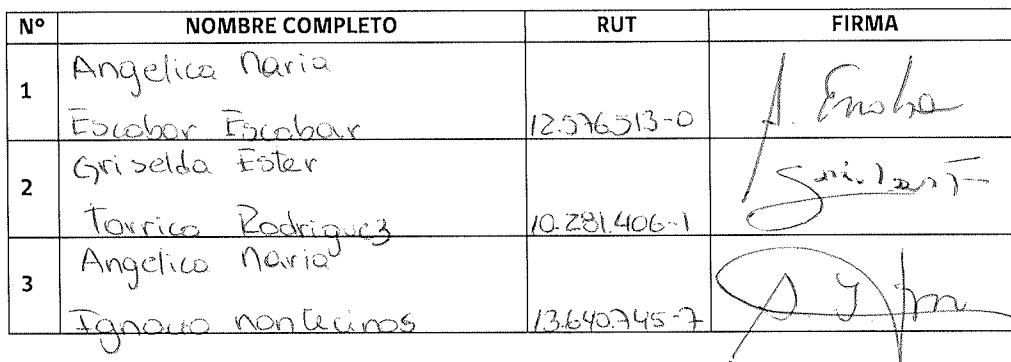 Nº NOMBRE COMPLETO RUT FIRMA
1 Angelica Maria
Escobar Escobar 12.576.513-0
2 Griselda Ester
Torrico Rodriguez 10.281.406-1
3 Angelica Maria
Ignacio Montecinos 13.640.745-7